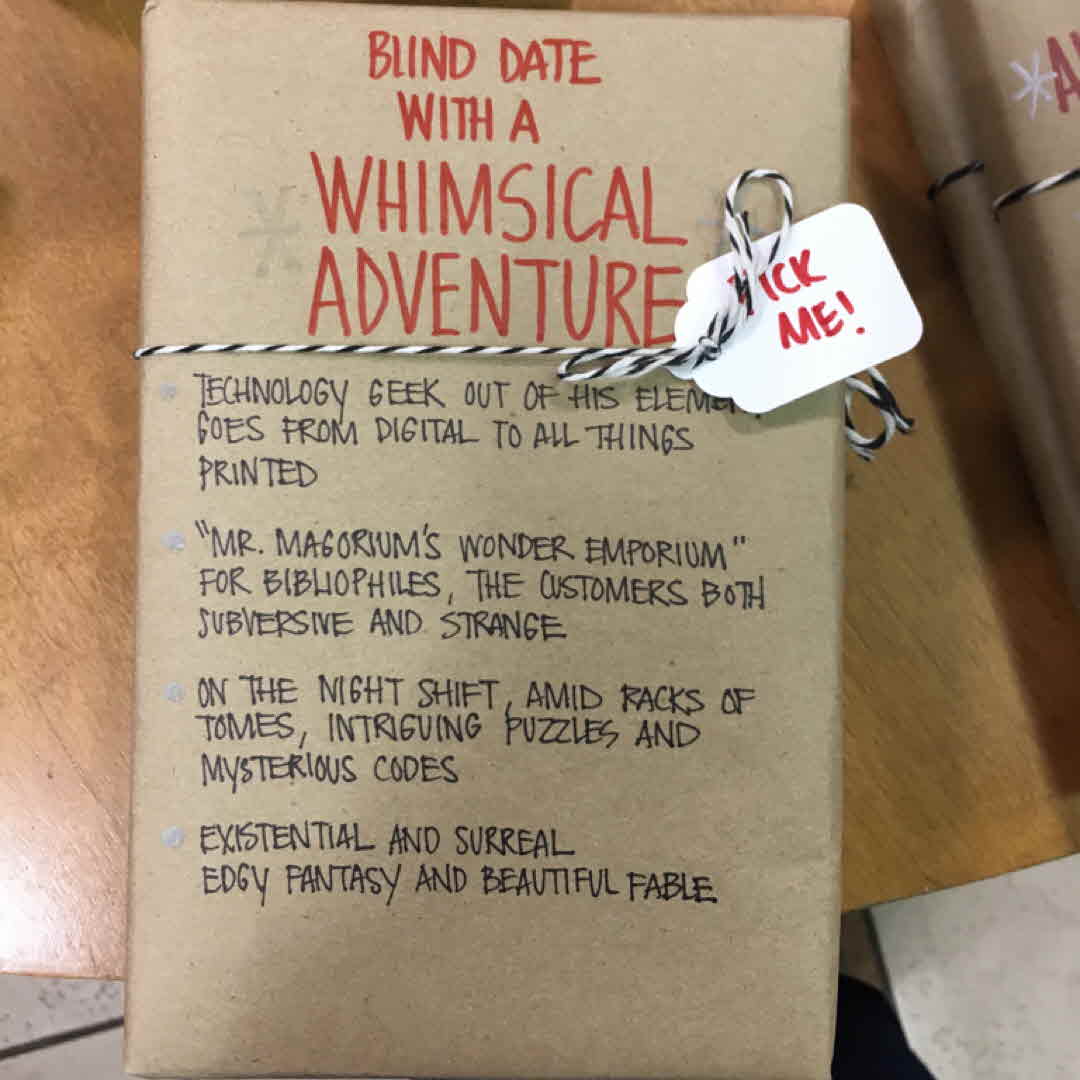 BLIND DATE
WITH A
WHIMSICAL
ADVENTURE
PICK
ME!
TECHNOLOGY GEEK OUT OF HIS
GOES FROM DIGITAL TO ALL THINGS
PRINTED
"MR. MAGORIUM'S WONDER EMPORIUM"
FOR BIBLIOPHILES, THE CUSTOMERS BOTH
SUBVERSIVE AND STRANGE
ON THE NIGHT SHIFT, AMID RACKS OF
TOMES, INTRIGUING PUZZLES AND
MYSTERIOUS CODES
EXISTENTIAL AND SURREAL
EDGY FANTASY AND BEAUTIFUL FABLE